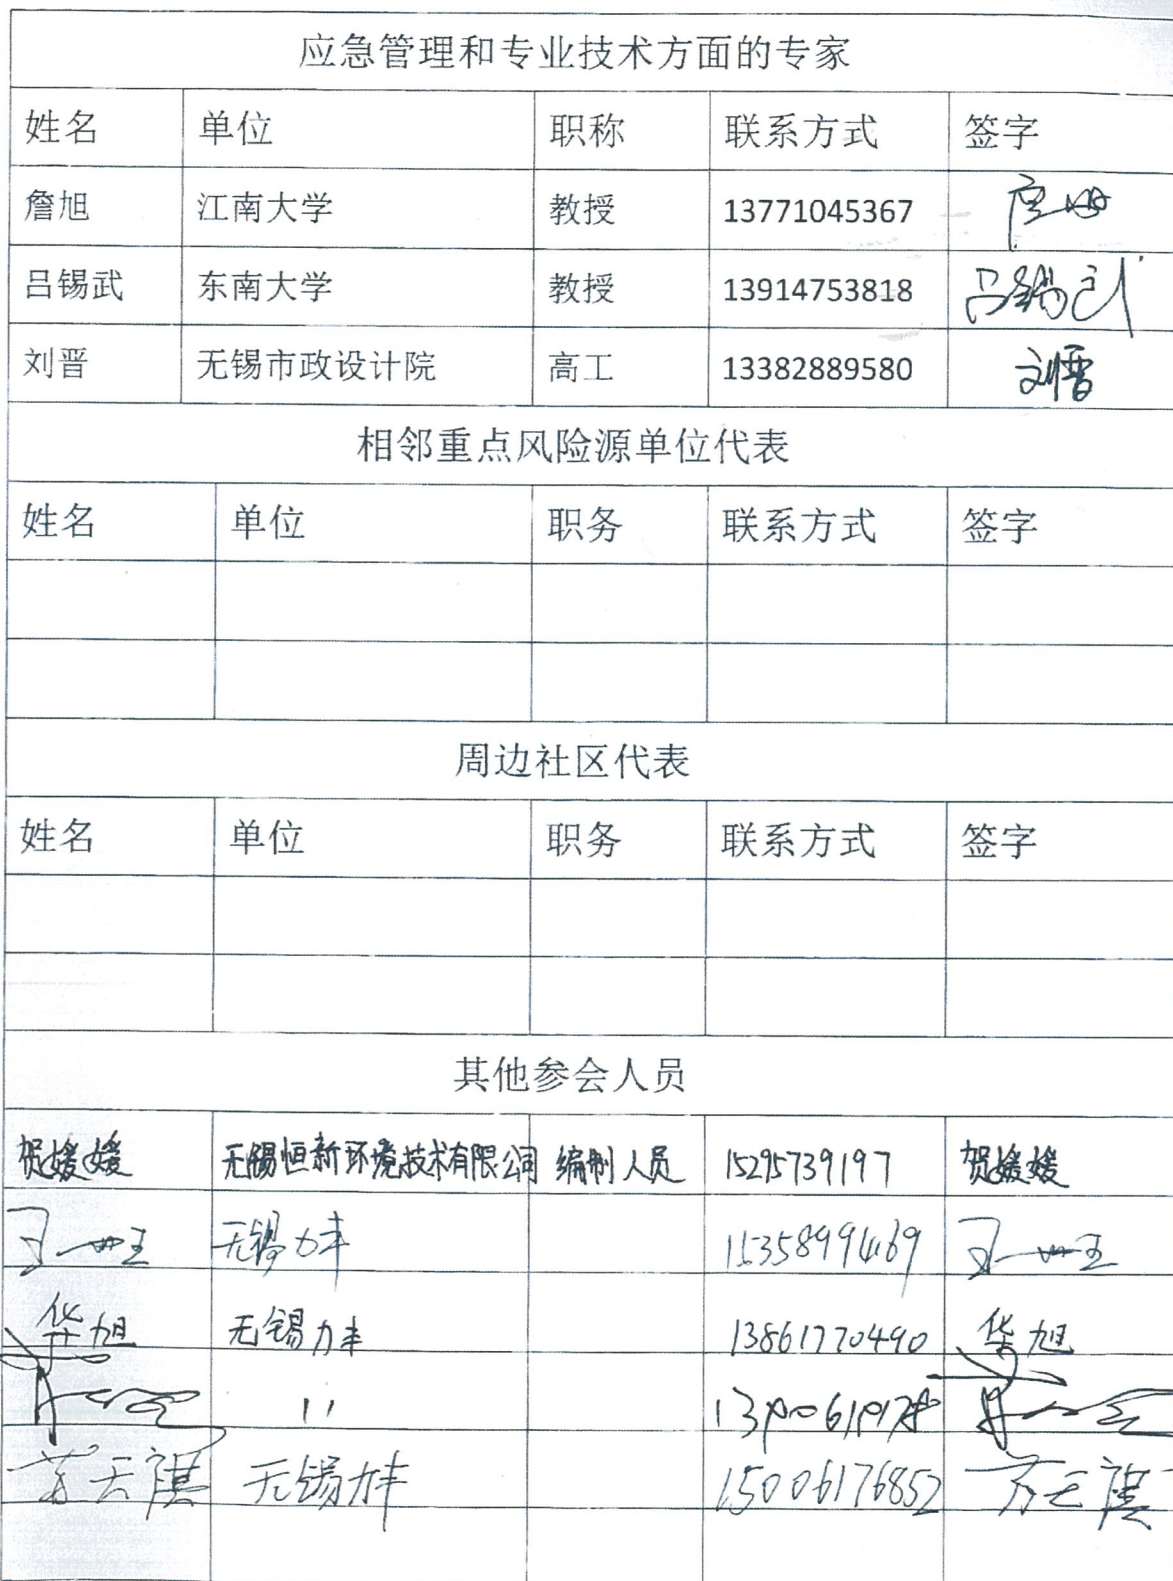 应急管理和专业技术方面的专家
姓名 单位 职称 联系方式 签字
詹旭 江南大学 教授 13771045367
吕锡武 东南大学 教授 13914753818 吕锡武
刘晋 无锡市政设计院 高工 13382889580 刘晋
相邻重点风险源单位代表
姓名 单位 职务 联系方式 签字
周边社区代表
姓名 单位 职务 联系方式 签字
其他参会人员
贺媛媛 无锡恒新环境技术有限公司 编制人员 15295739197 贺媛媛
无锡力丰
华旭 无锡力丰 13861770490 华旭
11
无锡力丰 15006176852